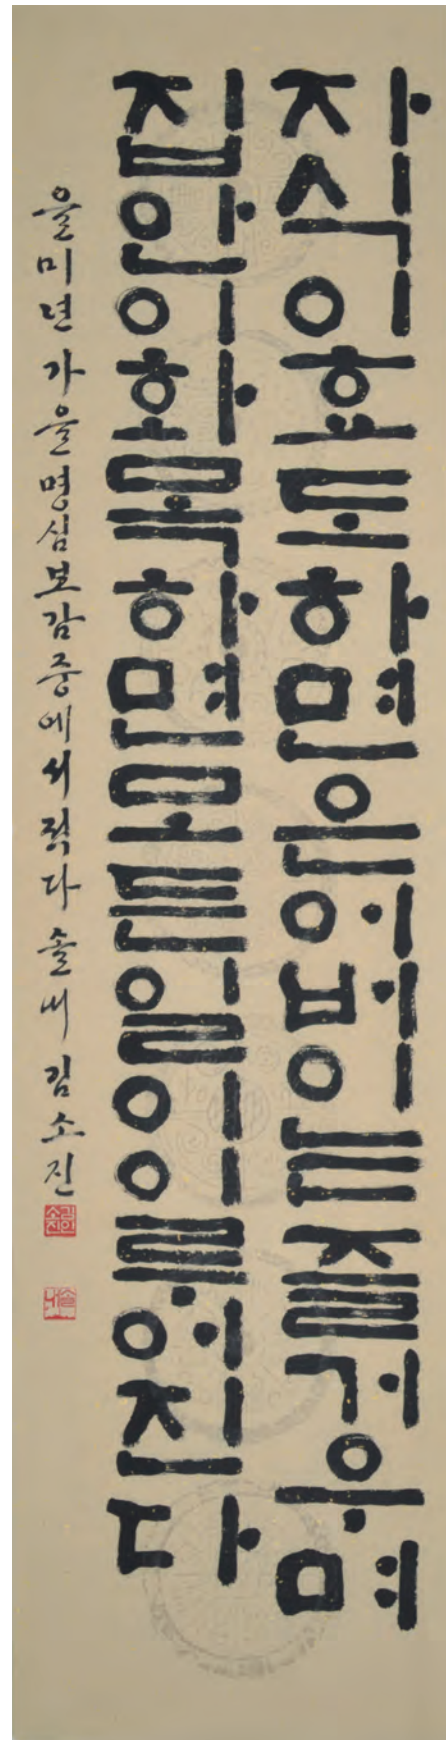 자식이효도하면은어버이는즐거우며
집안이화목하면모든일이이루어진다
을미년 가을 명심보감 중에서 적다 솔내 김소진